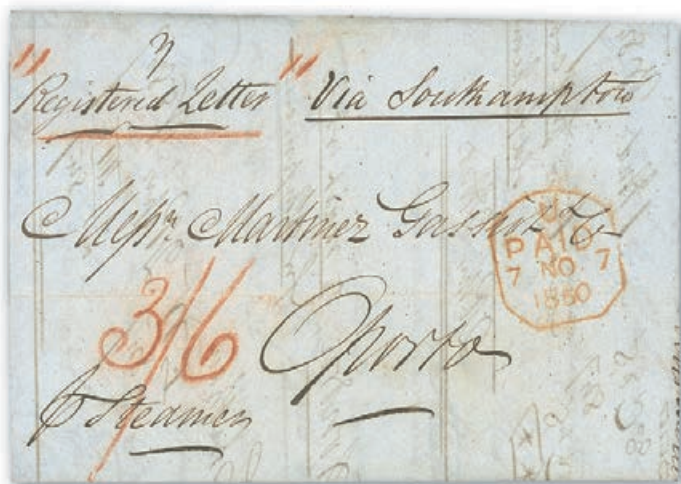 "Registered Letter" Via Southampton
Messrs Martinez Gassiot & Co
U
PAID
7 NO 7
1850
3/6
Oporto
p Steamer